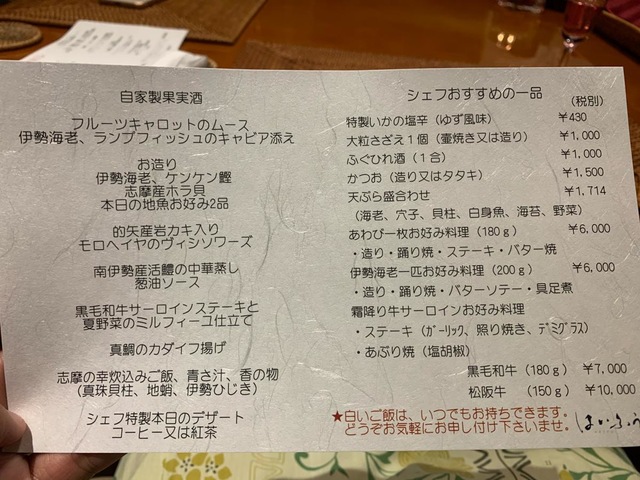 自家製果実酒
フルーツキャロットのムース
伊勢海老、ランプフィッシュのキャビア添え
お造り
伊勢海老、ケンケン鰹
志摩産ホラ貝
本日の地魚お好み2品
的矢産岩カキ入り
モロヘイヤのヴィシソワーズ
南伊勢産活鱧の中華蒸し
葱油ソース
黒毛和牛サーロインステーキと
夏野菜のミルフィーユ仕立て
真鯛のカダイフ揚げ
志摩の幸炊込みご飯、青さ汁、香の物
(真珠貝柱、地蛸、伊勢ひじき)
シェフ特製本日のデザート
コーヒー又は紅茶
シェフおすすめの一品
(税別)
特製いかの塩辛 (ゆず風味) ¥430
大粒さざえ1個 (壷焼き又は造り) ¥1,000
ふぐひれ酒 (1合) ¥1,000
かつお (造り又はタタキ) ¥1,500
天ぷら盛合わせ ¥1,714
(海老、穴子、貝柱、白身魚、海苔、野菜)
あわび一枚お好み料理 (180g) ¥6,000
・造り・踊り焼・ステーキ・バター焼
伊勢海老一匹お好み料理 (200g) ¥6,000
・造り・踊り焼・バターソテー・具足煮
霜降り牛サーロインお好み料理
・ステーキ (ガーリック、照り焼き、デミグラス)
・あぶり焼 (塩胡椒)
黒毛和牛 (180g) ¥7,000
松阪牛 (150g) ¥10,000
★白いご飯は、いつでもお持ちできます。
どうぞお気軽にお申し付け下さいませ。